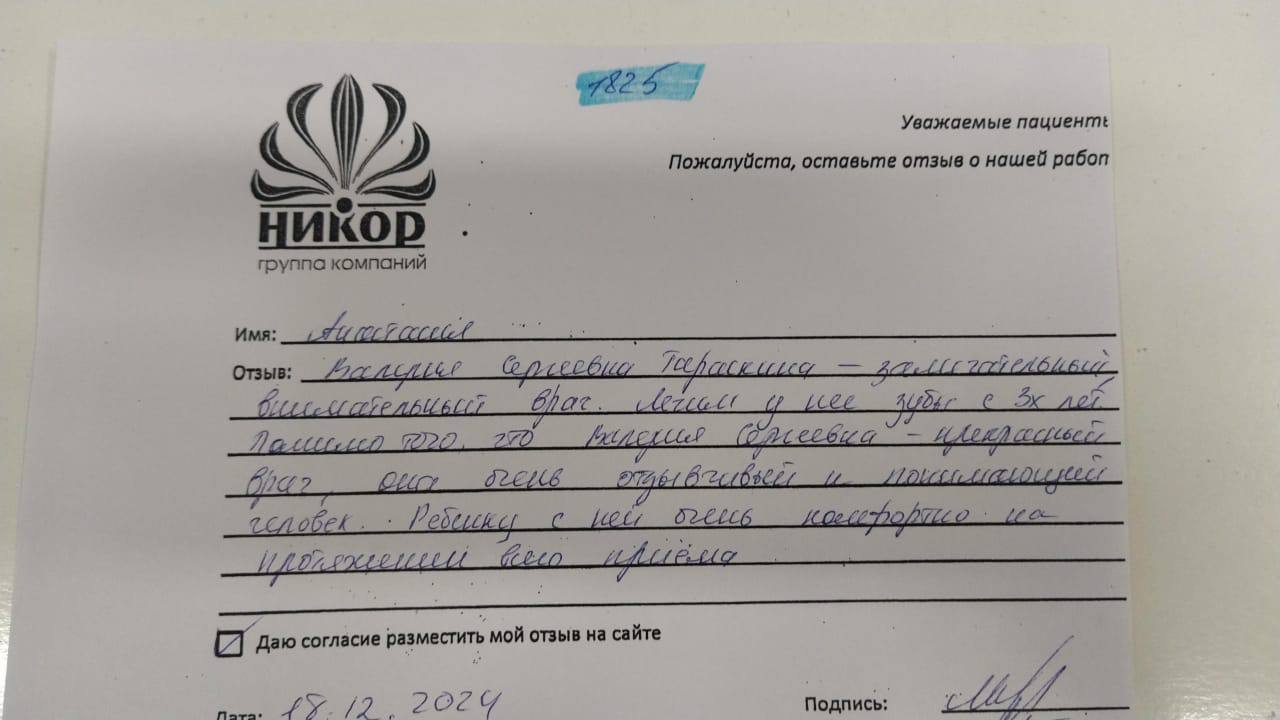 1825
Уважаемые пациенты
Пожалуйста, оставьте отзыв о нашей работ
НИКОР
группа компаний
Имя: Анастасия
Отзыв: Валерия Сергеевна Тараскина – замечательный
внимательный врач. Лечим у нее зубы с 3х лет.
Помимо того, что Валерия Сергеевна – прекрасный
врач, она очень отзывчивый и понимающий
человек. Ребенку с ней очень комфортно на
протяжении всего приёма
Даю согласие разместить мой отзыв на сайте
Дата: 18.12.2024
Подпись: